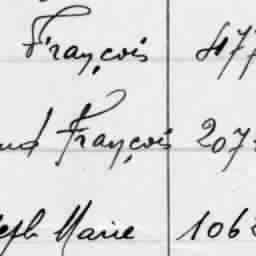 François 477
François 207
Marie 106